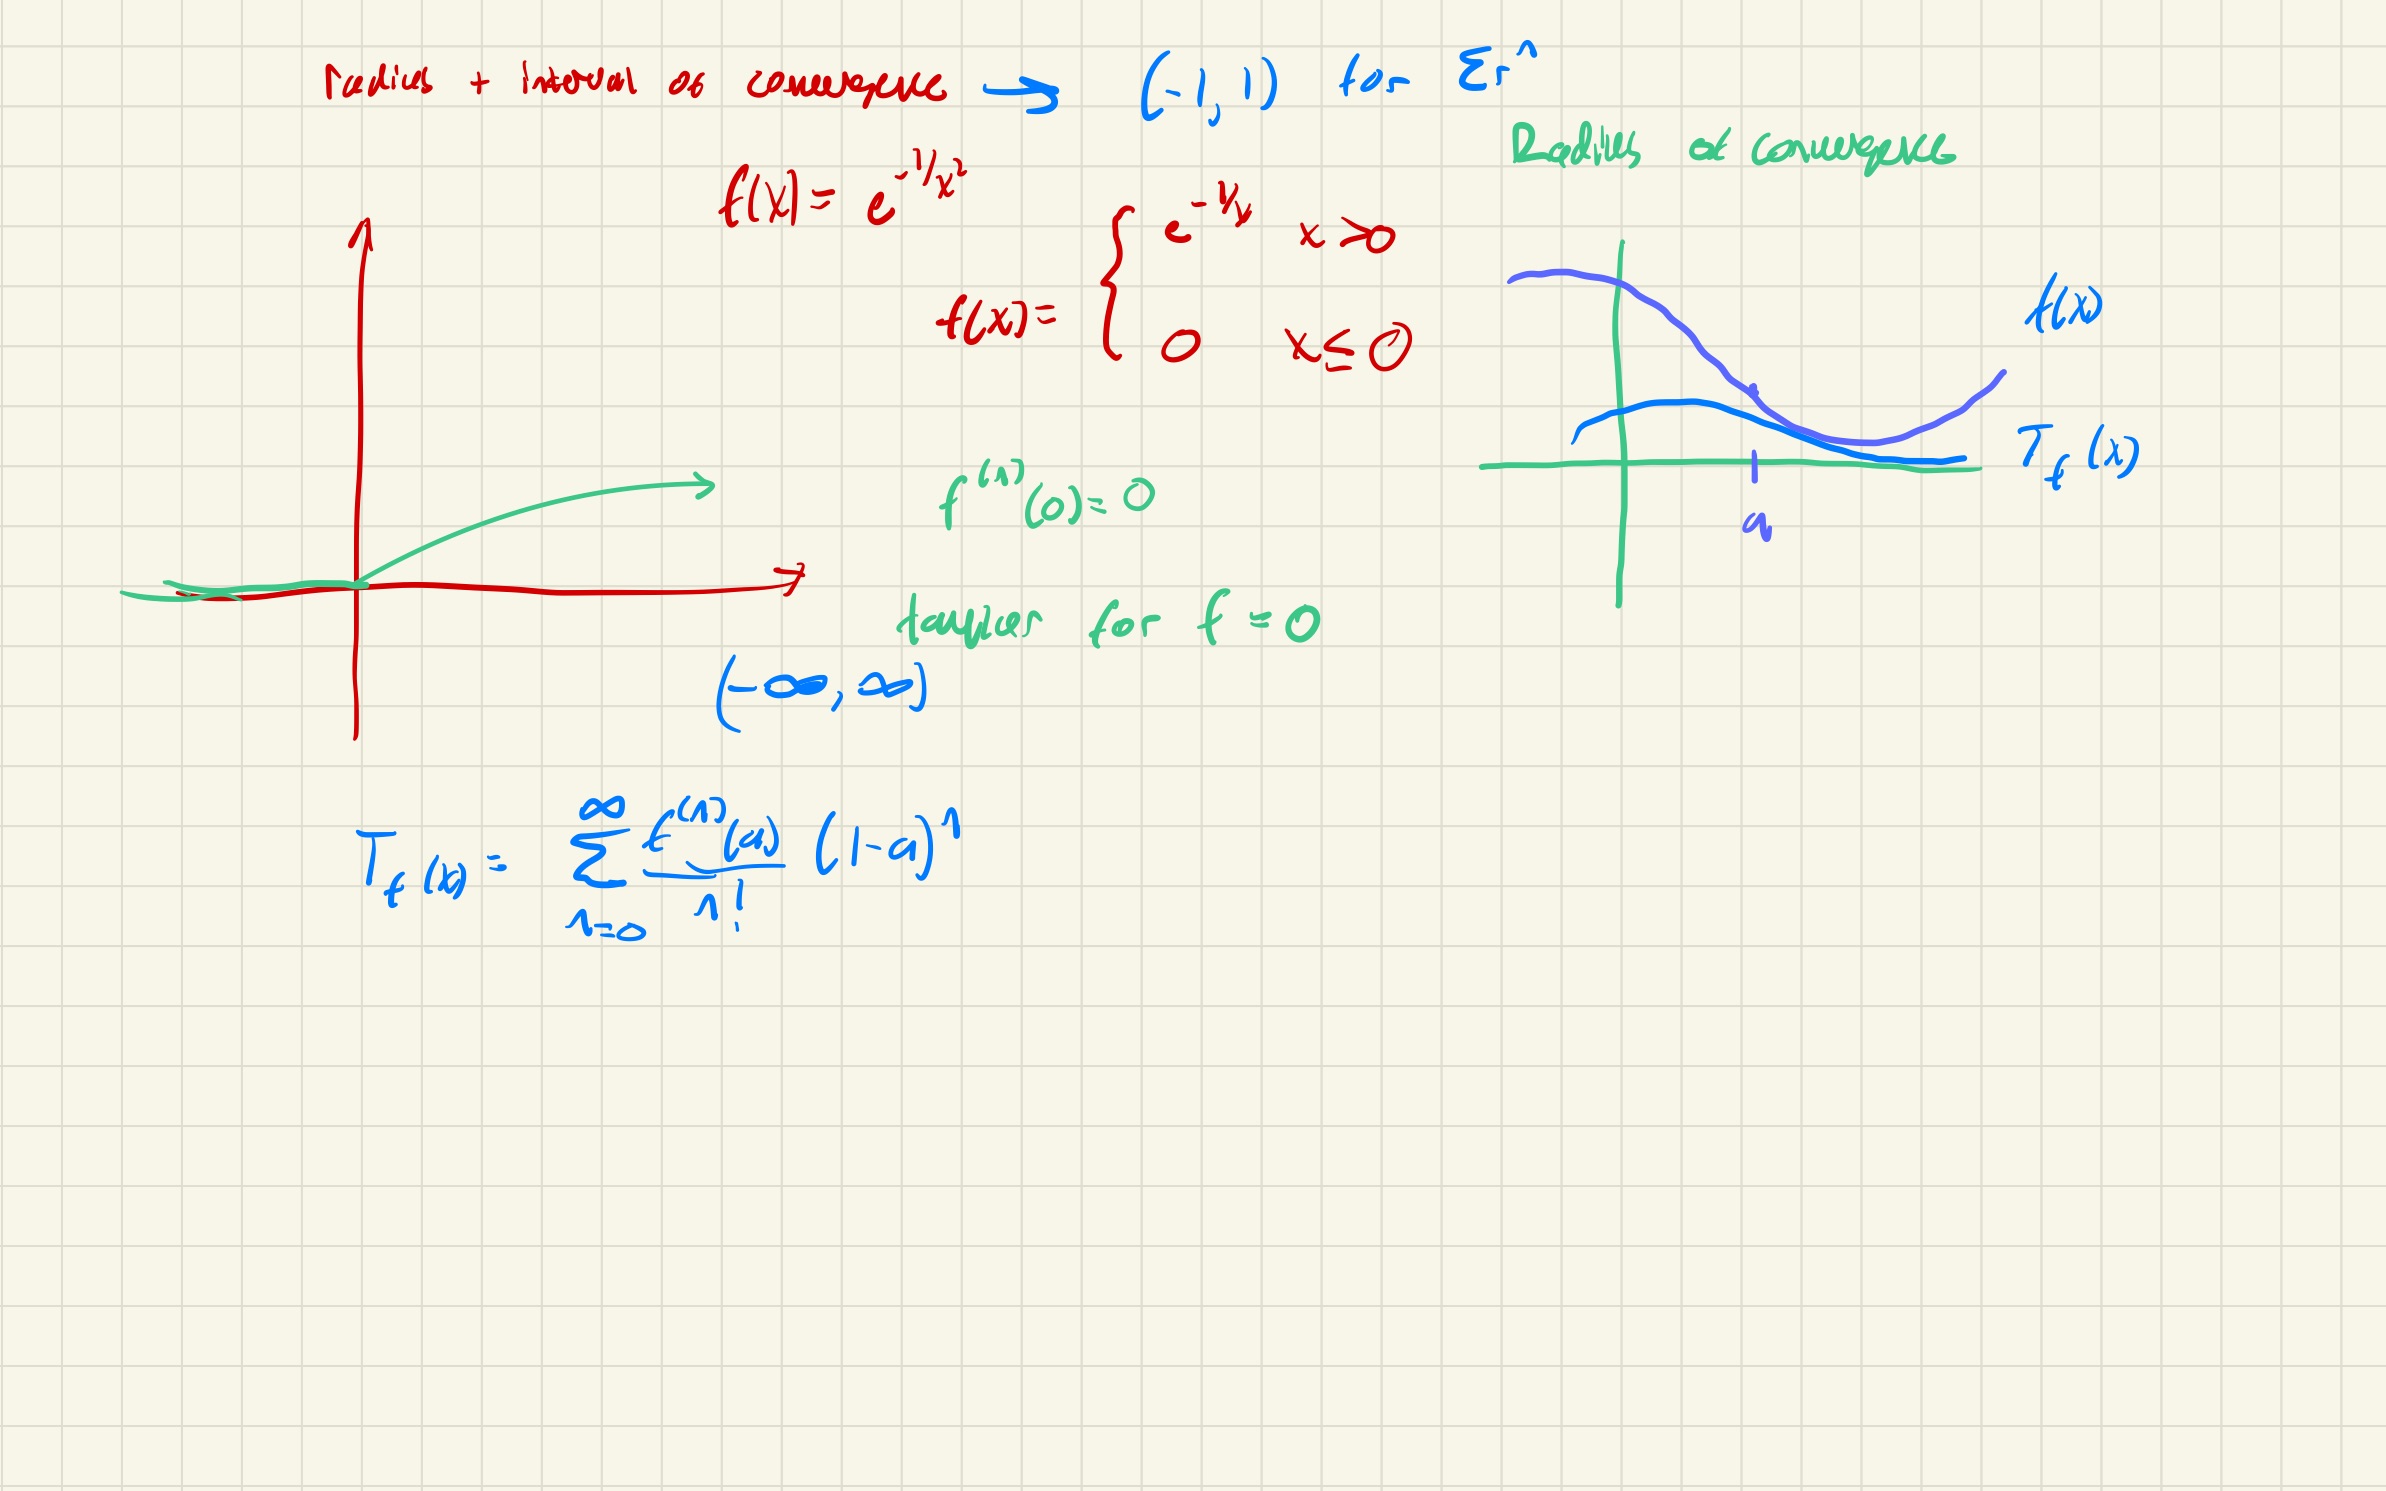 Radius + interval of convergence → (-1, 1) for Σr^n
Radius of convergence
f(x) = e^{-1/x^2}
f(x) = { e^{-1/x} x > 0
0 x ≤ 0
f(x)
T_f(x)
a
f^{(n)}(0) = 0
taylor for f = 0
(-∞, ∞)
T_f(x) = ∑_{n=0}^{∞} f^{(n)}(a)/n! (1-a)^n